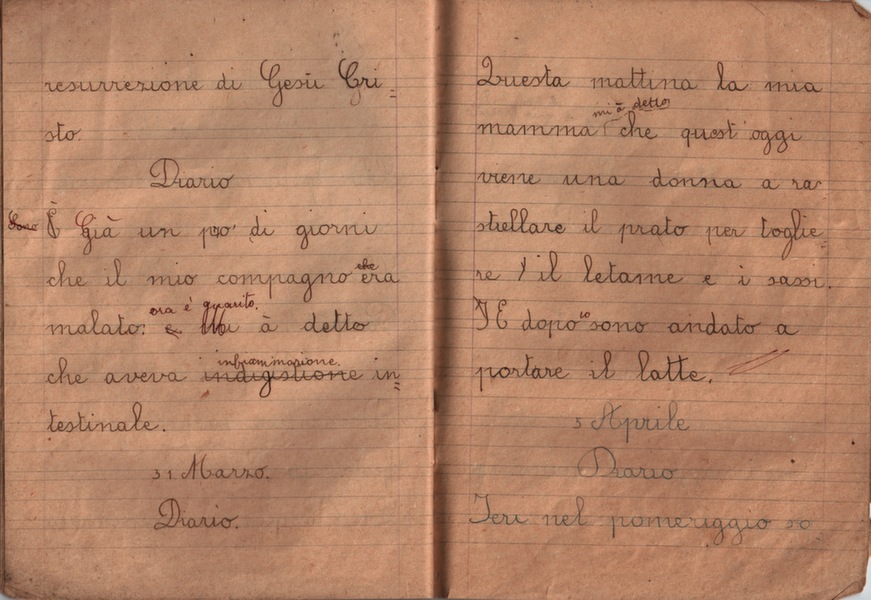 resurrezione di Gesù Cri=
sto.
Diario
Sono È Già un po' di giorni
che il mio compagno che era
ora è guarito.
malato: e. Mi à detto
infiammazione.
che aveva indigistione in=
testinale.
31 Marzo.
Diario.
Questa mattina la mia
mi à detto
mamma che quest'oggi
viene una donna a ra-
strellare il prato per toglie=
re il letame e i sassi.
E dopo io sono andato a
portare il latte.
5 Aprile
Diario
Ieri nel pomeriggio so